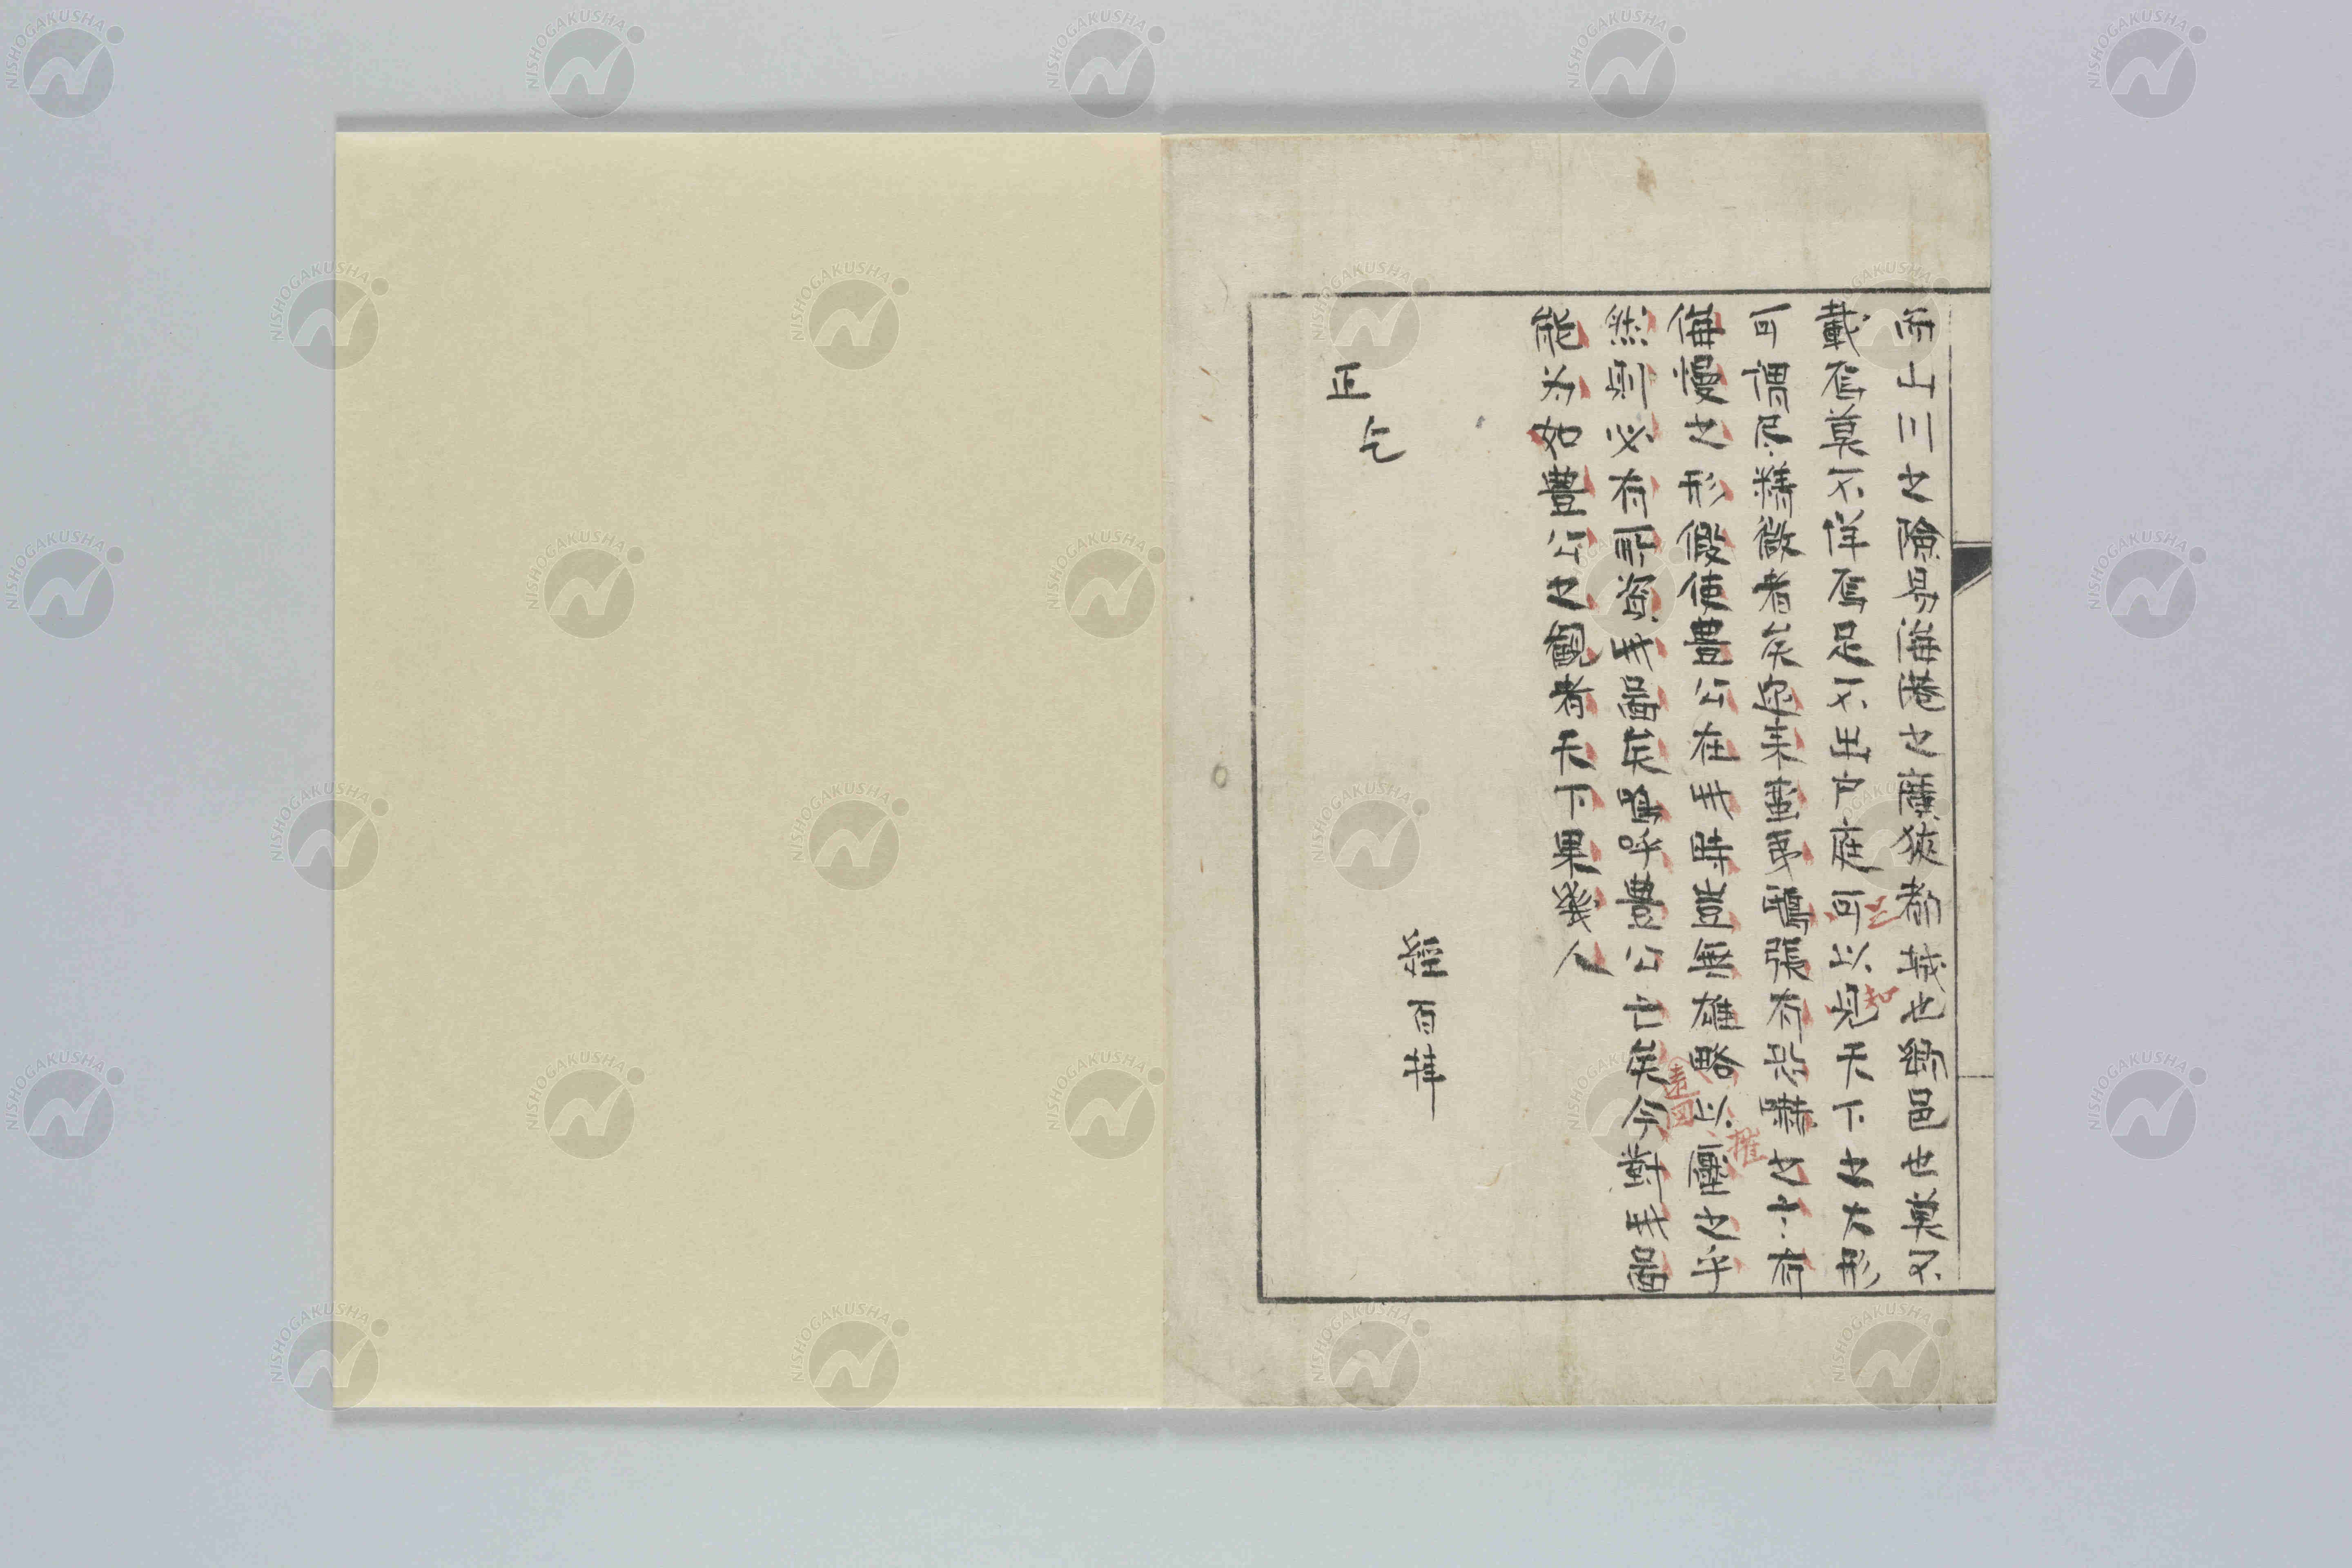 而山川之險易海港之廣狹都城也郷邑也莫不
載焉莫不詳焉足不出戸庭可以見天下之大形
可謂尽精微者矣近來蛮夷鴟張有恐嚇之
侮慢之形假使豊公在我時豈無雄略以圍之乎
然則必有所資我啚矣嗚呼豊公亡矣今對我啚
能為如豊公之觀者天下果幾人
百拝
乞
正
知
遠図
摧
NISHOGAKUSHA